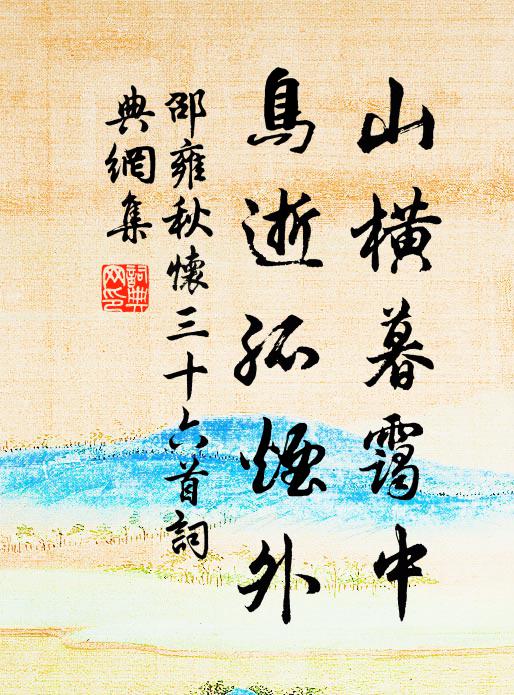 山橫暮靄中
鳥逝孤煙外
邵雍秋懷三十六首詞
典網集
詞典
网印